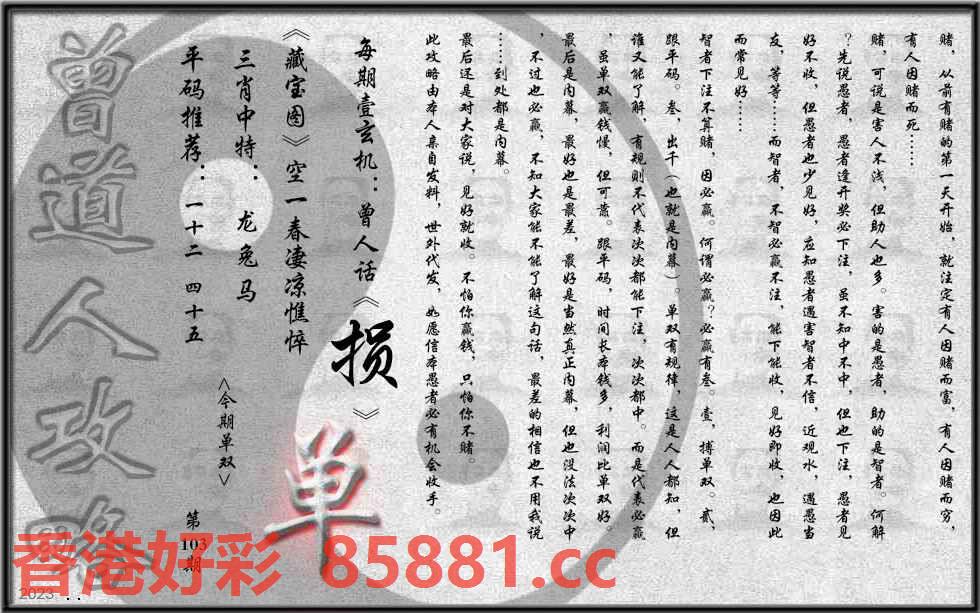 赌，从前有赌的第一天开始，就注定有人因赌而富，有人因赌而穷，
有人因赌而死……
赌，可说是害人不浅，但助人也多。害的是愚者，助的是智者。何解
？先说愚者，愚者逢开奖必下注，虽不知中不中，但也下注，愚者见
好不收，但愚者也少见好，应知愚者遇害智者不信，近观水，遇愚当
友，等等……而智者，不智必赢不注，能下能收，见好即收，也因此
而常见好……
智者下注不算赌，因必赢。何谓必赢？必赢有叁。壹，搏单双。贰，
跟平码。叁，出千（也就是内幕）。单双有规律，这是人人都知，但
谁又能了解，有规则不代表次次都能下注，次次都中。而是代表必赢
，虽单双赢钱慢，但可靠。跟平码，时间长本钱多，利润比单双好。
最后是内幕，最好也是最差，最好是当然真正内幕，但也没法次次中
，不过也必赢，不知大家能不能了解这句话，最差的相信也不用我说
……到处都是内幕。
最后还是对大家说，见好就收。不怕你赢钱，只怕你不赌。
此攻略由本人亲自发料，世外代发，如愿信本愚者必有机会收手。
每期壹玄机：曾人话《损》
《藏宝图》空一春凄凉憔悴
三肖中特：龙兔马
平码推荐：一十二 四十五
<今期单双>
单
第
103
期
曾道人攻略
香港好彩 85881.cc
2023